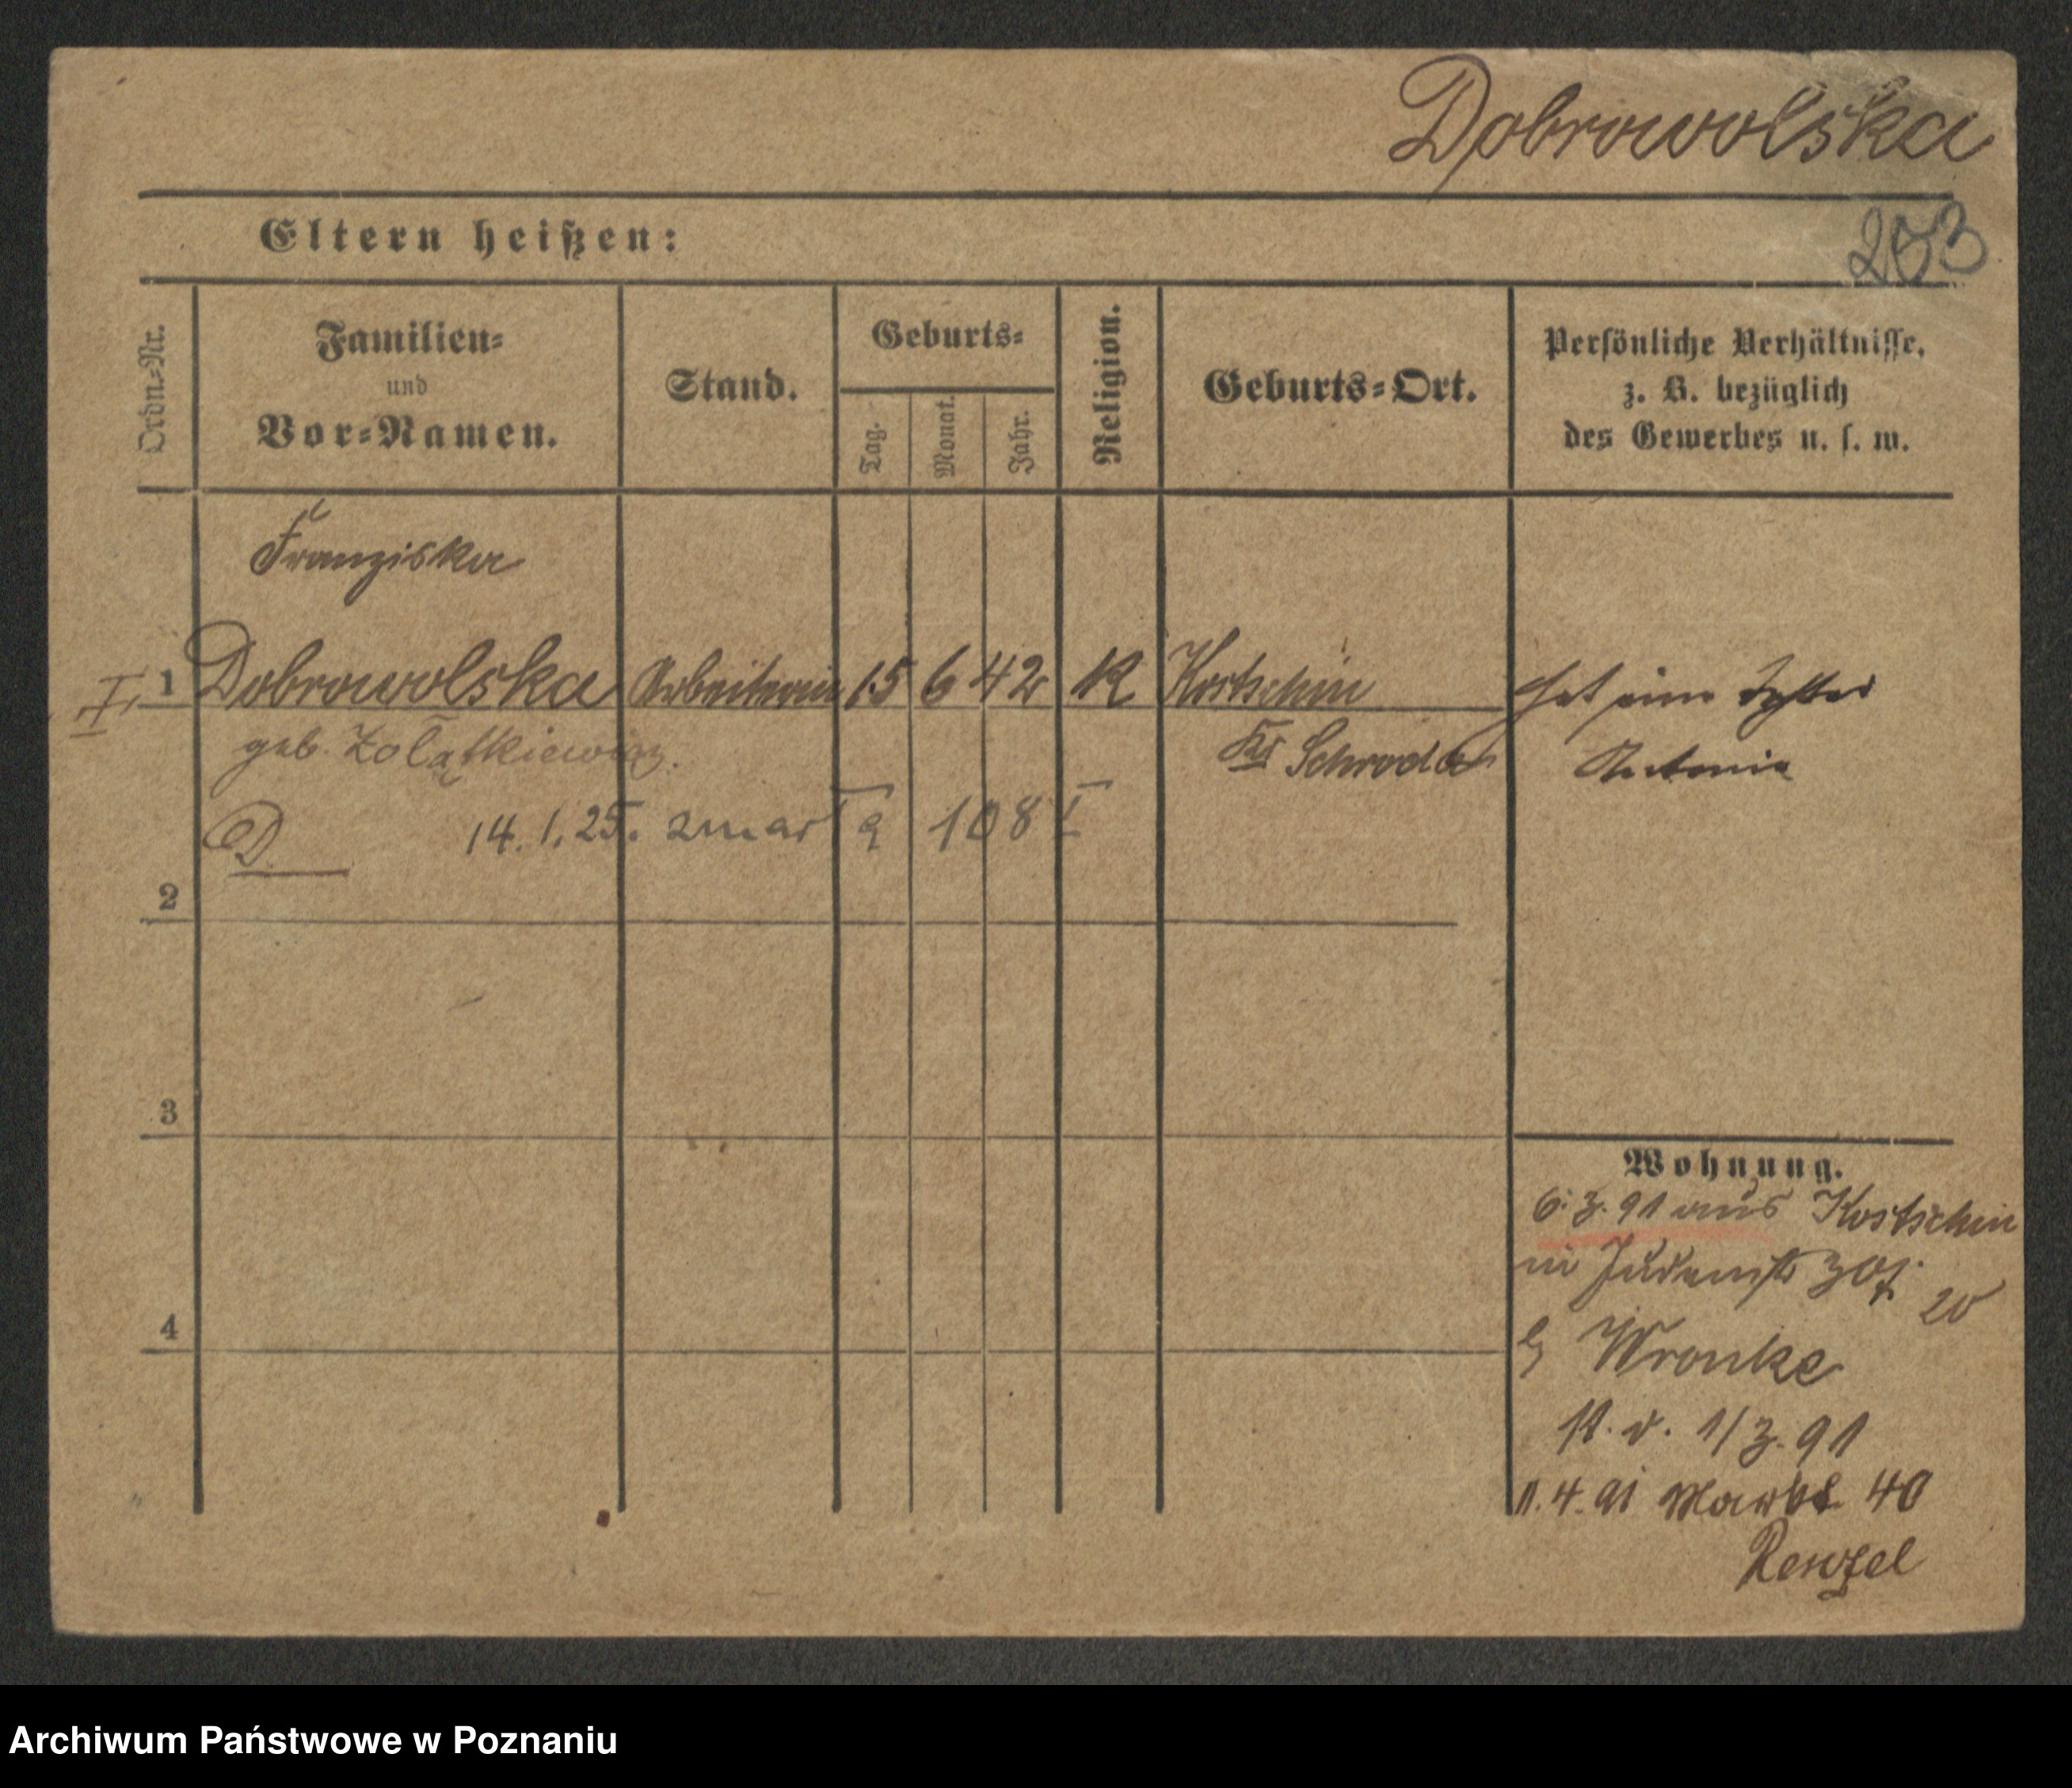 Dobrowolska
Eltern heißen:
253
Ordn.-Nr.
Familien-
und
Vor-Namen.
Stand.
Geburts-
Tag.
Monat.
Jahr.
Religion.
Geburts-Ort.
Persönliche Verhältnisse,
z. B. bezüglich
des Gewerbes u. s. w.
Franziska
I. 1 Dobrowolska Arbeiterin 15 6 42 K Kostschin hat eine Tochter
geb. Żołątkiewicz. Kr Schroda Antonia
D. 14. 1. 25. zmar I 9 108 I
2
3
4
Wohnung.
6. 3. 91 aus Kostschin
in Judenstr 30
20
b Wronke
v. 1/3. 91
11. 4. 91 Markt 40
Renzel
Archiwum Państwowe w Poznaniu